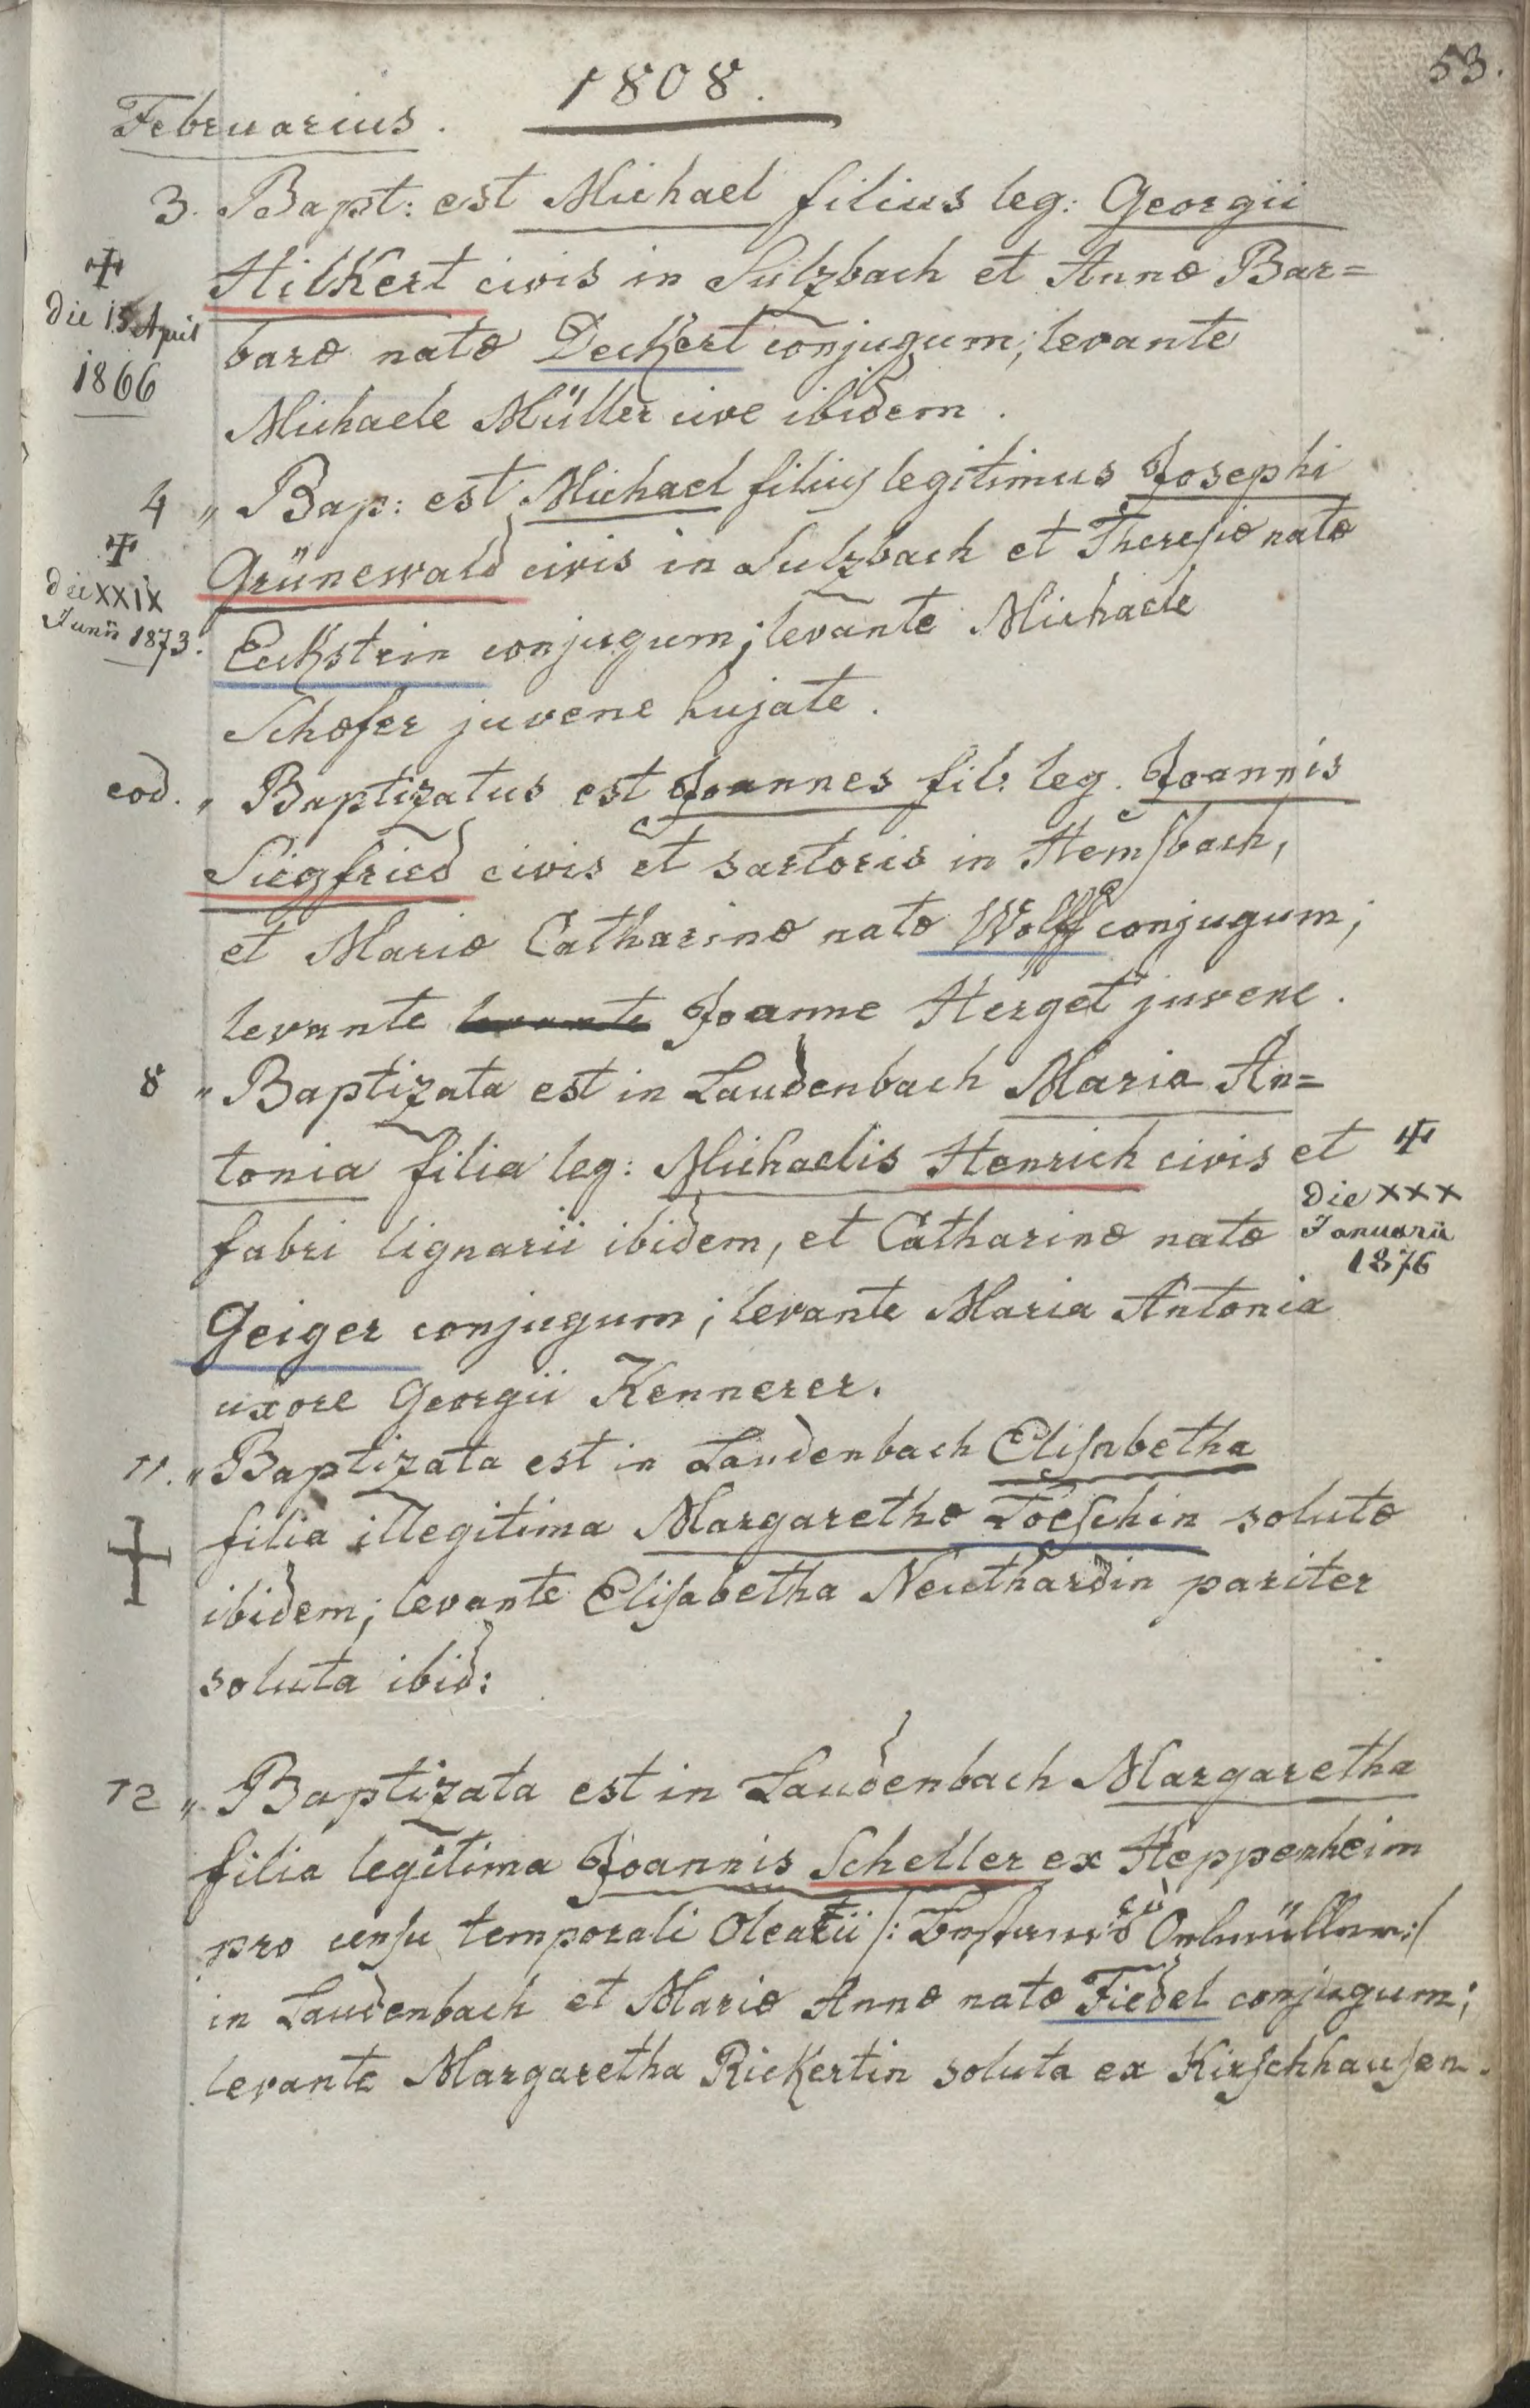 53.
1808.
Februarius.
3. Bapt: est Michael filius leg: Georgii
Hilkert civis in Sulzbach et Annæ Bar=
✝
die 15 April
1866
baræ natæ Deckert conjugum; levante
Michaele Müller cive ibidem.
4 „ Bap: est Michael filius legitimus Josephi
✝
die XXIX
Junii 1873.
Grünewald civis in Sulzbach et Theresiæ natæ
Eckstein conjugum; levante Michaele
Schæfer juvene hujate.
eod. „ Baptizatus est Joannes fil: leg. Joannis
Siegfried civis et sartoris in Hemsbach,
et Mariæ Catharinæ natæ Wolff conjugum;
levante levante Joanne Herget juvene.
8 „ Baptizata est in Laudenbach Maria An=
tonia filia leg: Michaelis Henrich civis et
✝
die XXX
Januarii
1876
fabri lignarii ibidem, et Catharinæ natæ
Geiger conjugum; levante Maria Antonia
uxore Georgii Kennerer.
11. „ Baptizata est in Laudenbach Elisabetha
✝
filia illegitima Margarethæ Loeschin solutæ
ibidem; levante Elisabetha Neuthardin pariter
soluta ibid:
12 „ Baptizata est in Laudenbach Margaretha
filia legitima Joannis Scheller ex Heppenheim
pro censu temporali Olearii /: Oelmüller :/
in Laudenbach et Mariæ Annæ natæ Fiedel conjugum;
levante Margaretha Rickertin soluta ex Kirschhausen.